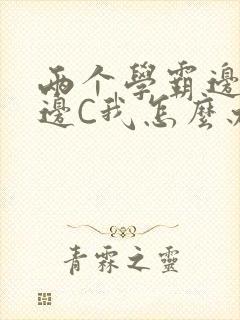 兩个學霸邊
邊C我怎麼
青霖之靈